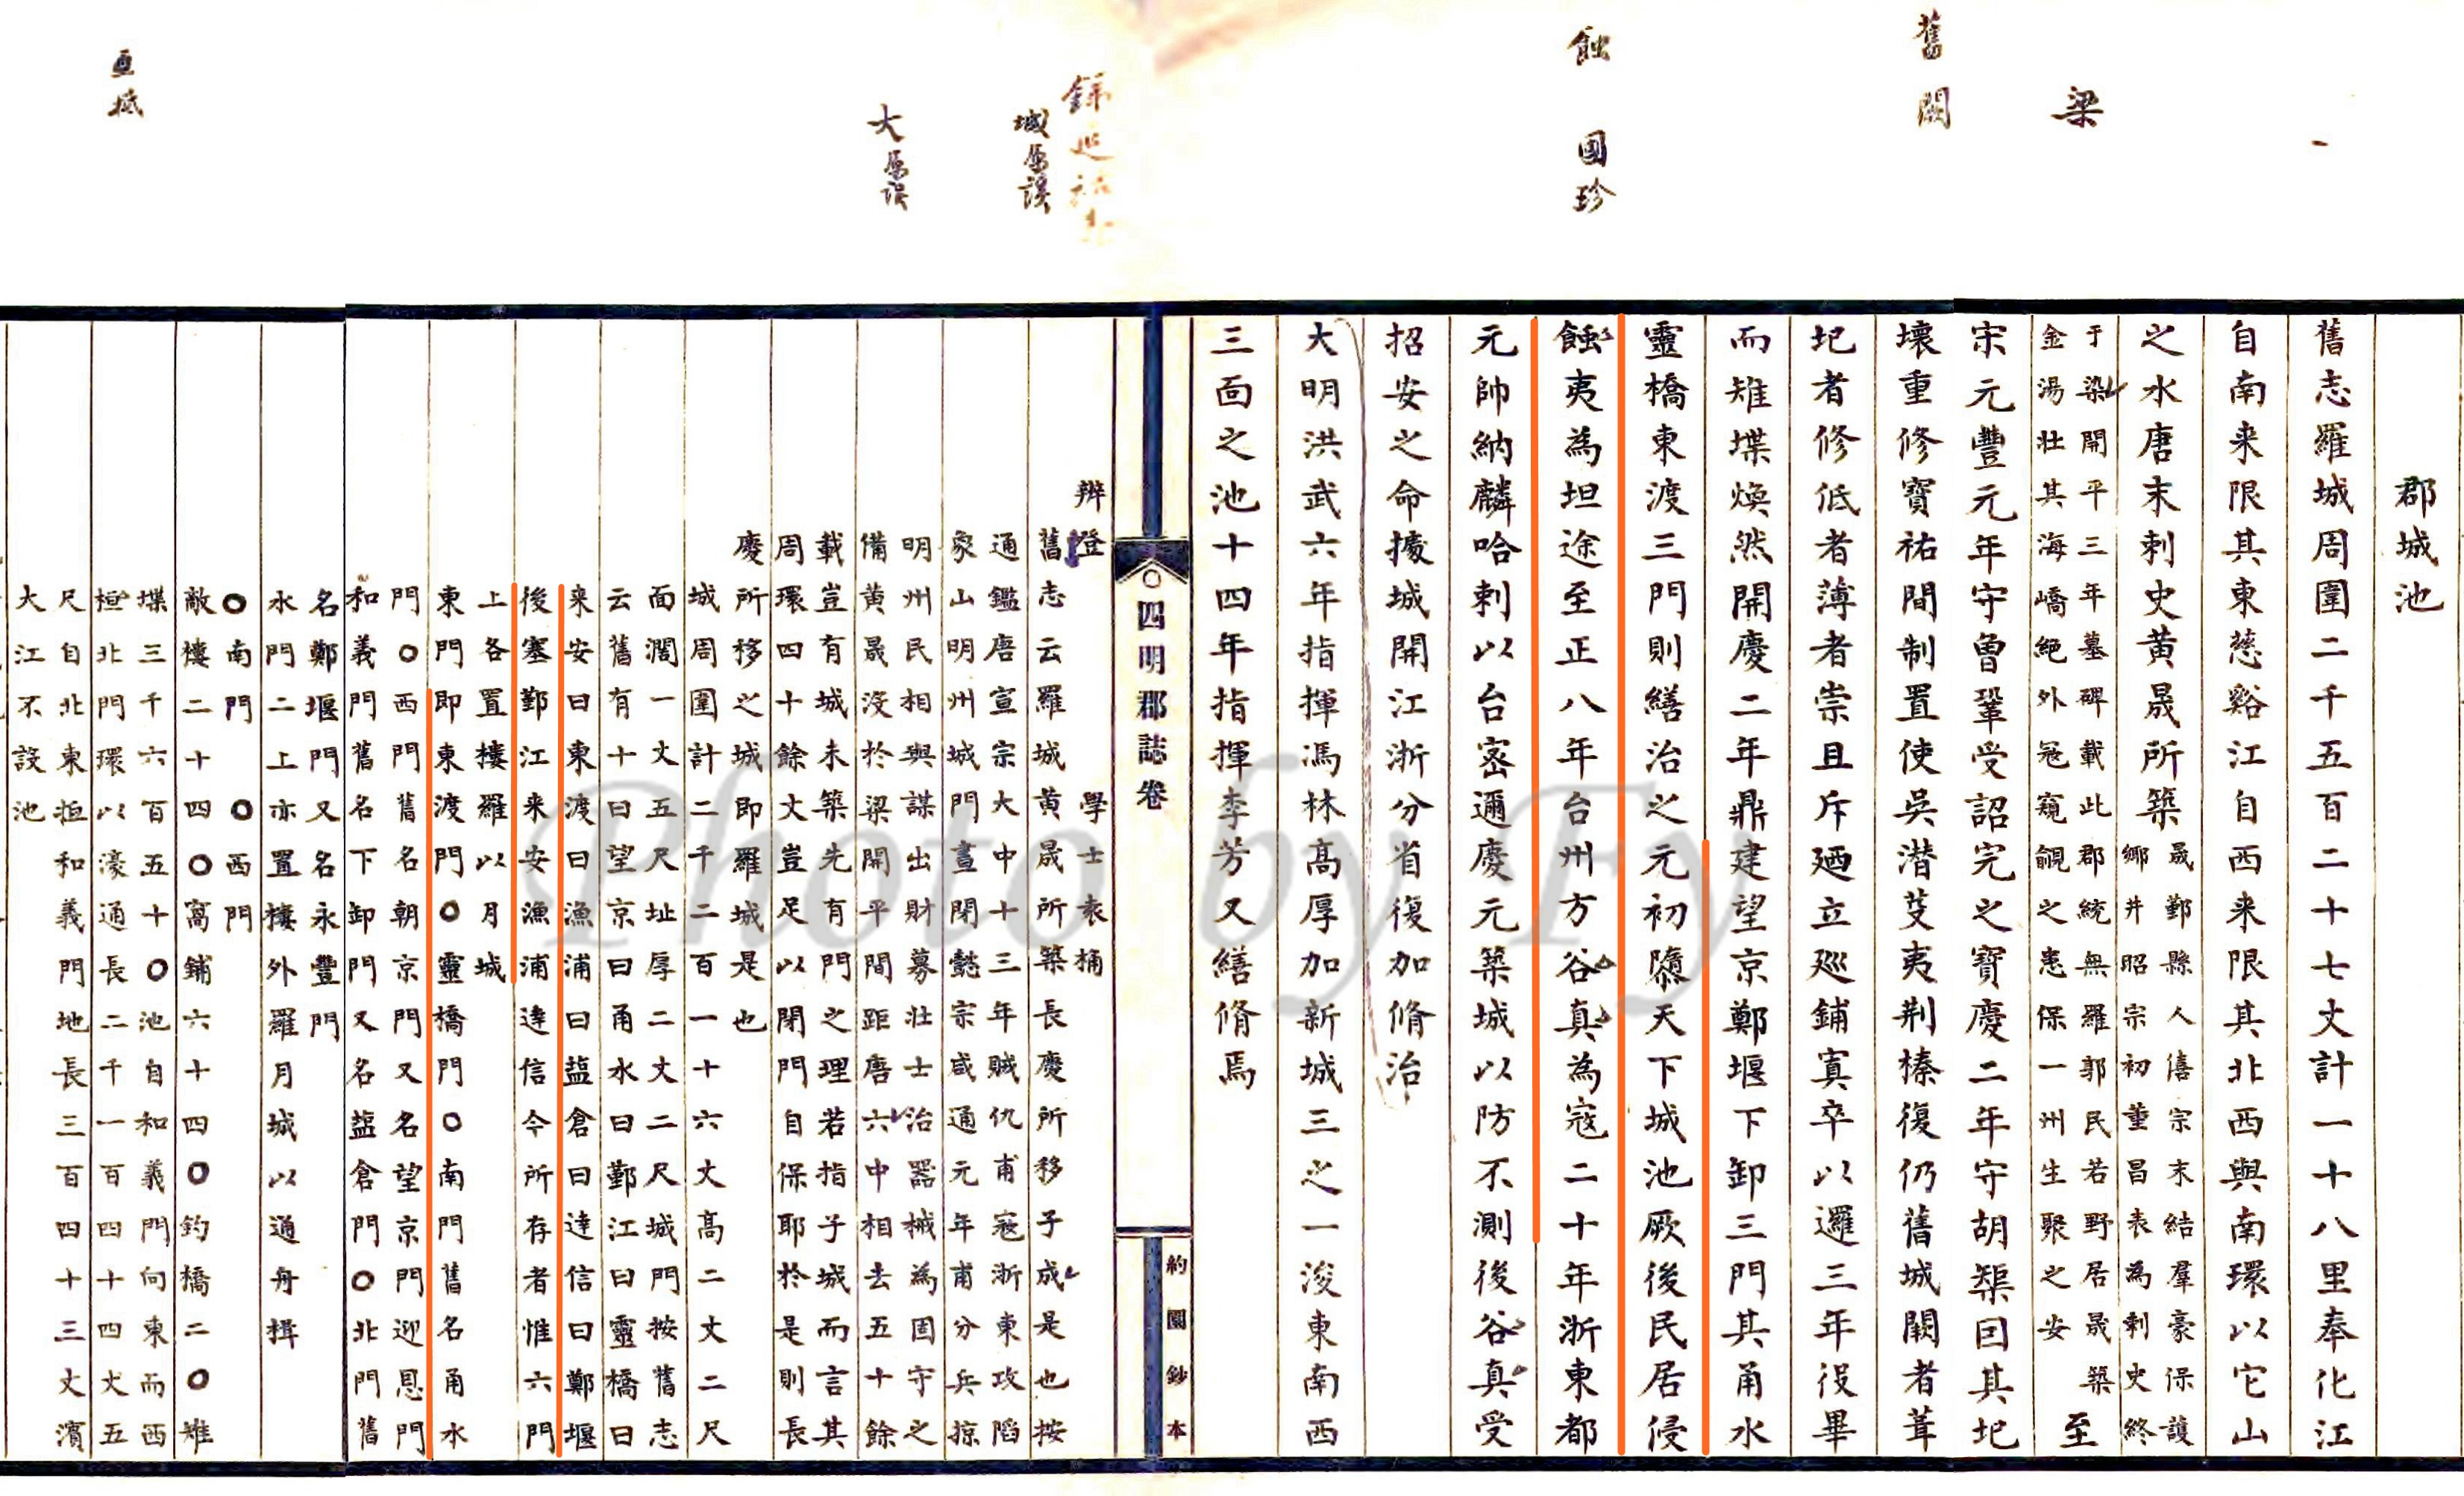 一
梁
舊 闕
蝕 國珍
城原誤
大原誤
直抵
郡城池
舊志羅城周圍二千五百二十七丈計一十八里奉化江
自南来限其東慈谿江自西来限其北西與南環以它山
之水唐末刺史黄晟所築晟鄞縣人僖宗末結羣豪保護
鄉井昭宗初董昌表為刺史終
于染開平三年墓碑載此郡統無羅郭民若野居晟築
金湯壮其海嶠絶外冦窺覦之患保一州生聚之安至
宋元豐元年守曾鞏受詔完之寶慶二年守胡榘因其圮
壞重修寶祐間制置使吳潜芟夷荆榛復仍舊城闕者葺
圮者修低者薄者崇且斥廼立廵鋪寘卒以邏三年役畢
而雉堞煥然開慶二年鼎建望京鄭堰下卸三門其甬水
靈橋東渡三門則繕治之元初隳天下城池厥後民居侵
蝕夷為坦途至正八年台州方谷真為寇二十年浙東都
元帥納麟哈剌以台宻邇慶元築城以防不測後谷真受
招安之命㨿城開江浙分省復加脩治
大明洪武六年指揮馮林高厚加新城三之一浚東南西
三面之池十四年指揮李芳又繕脩焉
○四明郡誌卷
約園鈔本
辨登 學士袁桷
舊志云羅城黄晟所築長慶所移子成是也按
通鑑唐宣宗大中十三年賊仇甫寇浙東攻䧟
象山明州城門晝閉懿宗咸通元年甫分兵掠
明州民相與謀出財募壮士治器械為固守之
備黄晟没於梁開平間距唐六中相去五十餘
載豈有城未築先有門之理若指子城而言其
周環四十餘丈豈足以閉門自保耶於是則長
慶所移之城即羅城是也
城周圍計二千二百一十六丈高二丈二尺
面濶一丈五尺址厚二丈二尺城門按舊志
云舊有十曰望京曰甬水曰鄞江曰靈橋曰
来安曰東渡曰漁浦曰盐倉曰逹信曰鄭堰
後塞鄞江来安漁浦逹信今所存者惟六門
上各置樓羅以月城
東門即東渡門○靈橋門○南門舊名甬水
門○西門舊名朝京門又名望京門迎恩門
和義門舊名下卸門又名盐倉門○北門舊
名鄭堰門又名永豐門
水門二上亦置樓外羅月城以通舟楫
○南門 ○西門
敵樓二十四○窩鋪六十四○釣橋二○雉
堞三千六百五十○池自和義門向東而西
桓北門環以濠通長二千一百四十四丈五
尺自北東抵和義門地長三百四十三丈濱
大江不設池
Photo by Fy